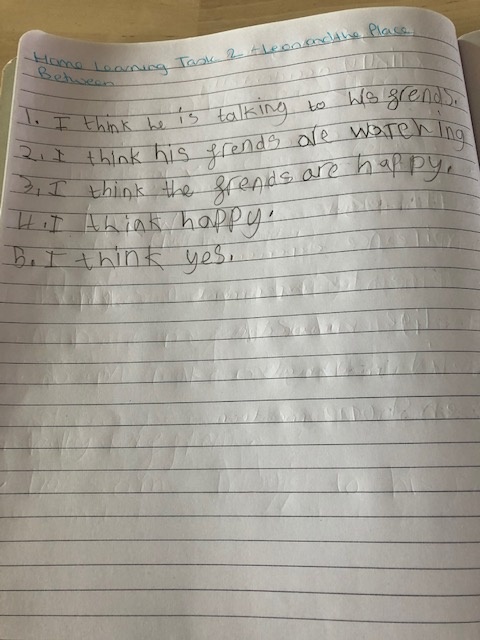 Home Learning Task 2 - Leon and the Place
Between
1. I think he is talking to his grends.
2. I think his grends are watching
3. I think the grends are happy.
4. I think happy.
5. I think yes.